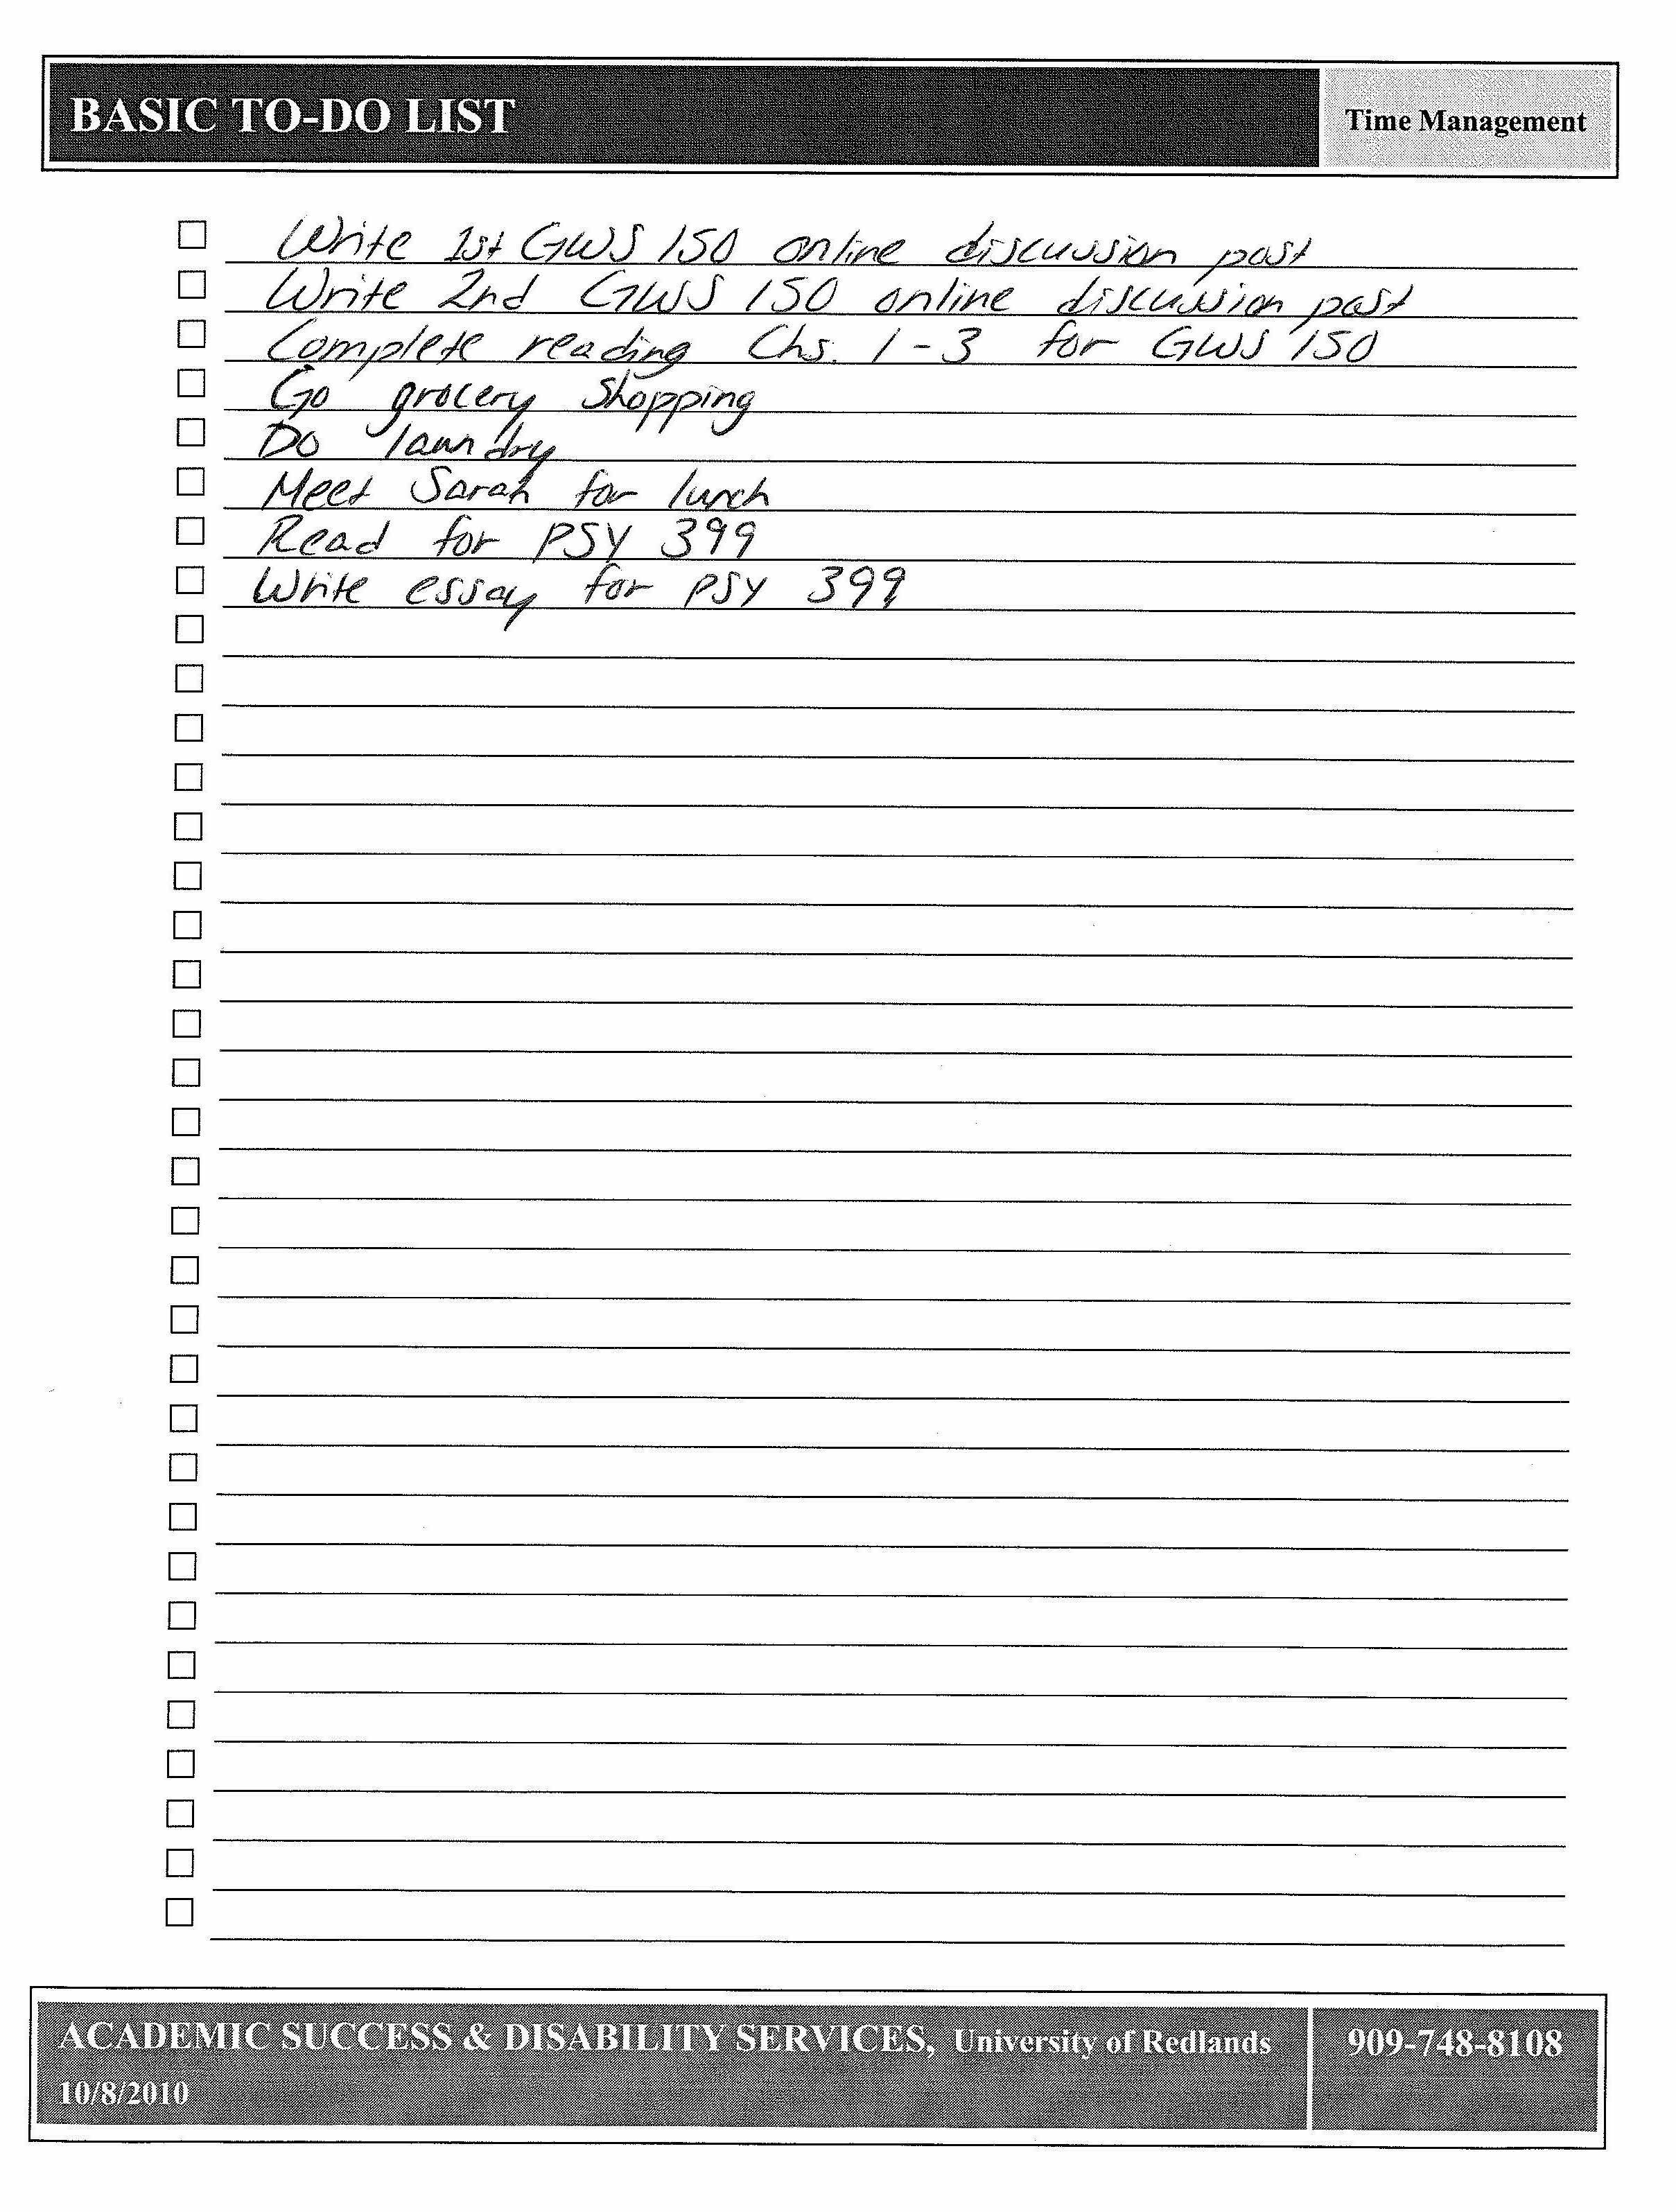 BASIC TO-DO LIST Time Management
Write 1st GWS 150 online discussion post
Write 2nd GWS 150 online discussion post
Complete reading Chs. 1-3 for GWS 150
Go grocery shopping
Do laundry
Meet Sarah for lunch
Read for PSY 399
Write essay for PSY 399
ACADEMIC SUCCESS & DISABILITY SERVICES, University of Redlands 909-748-8108
10/8/2010